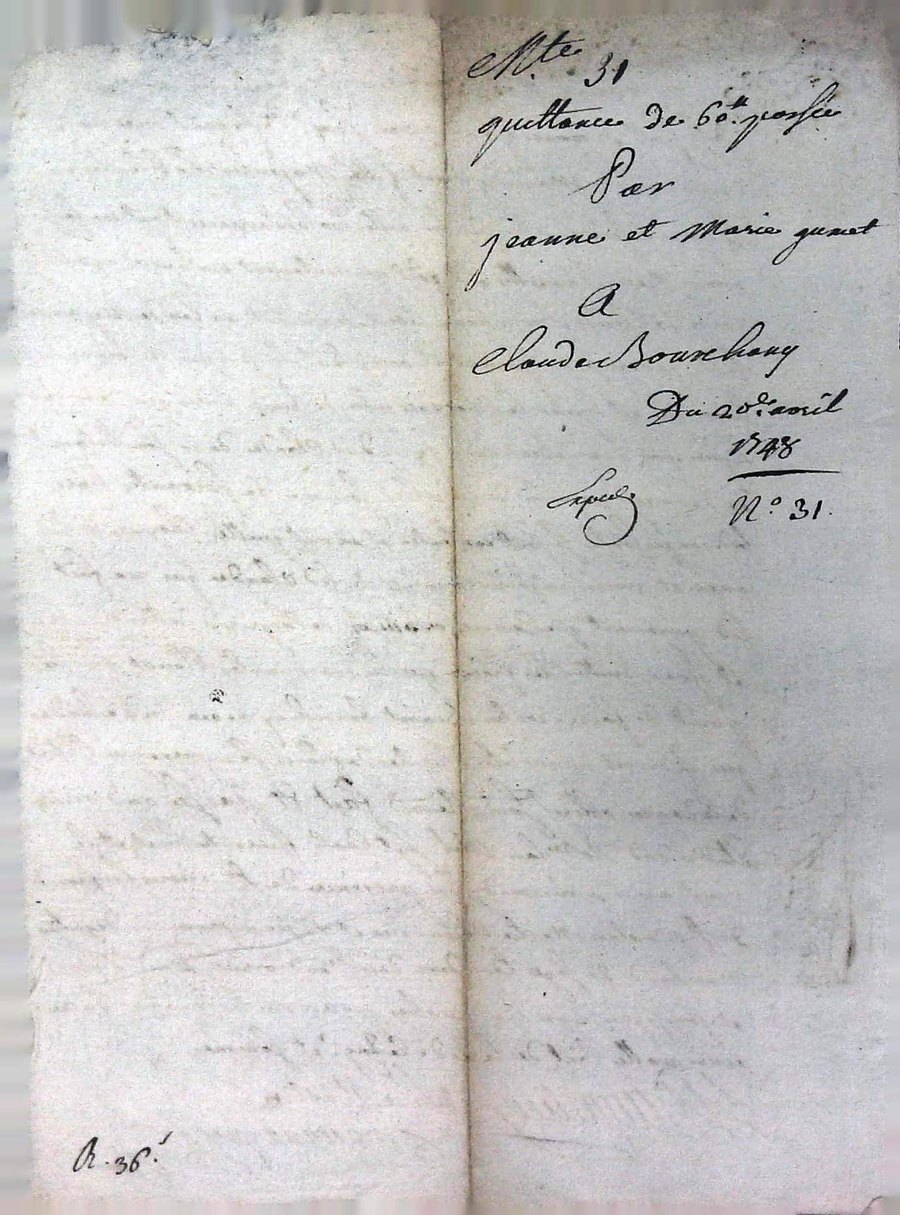 Mte
31
quittance de 60ᵗᵗ passée
Par
jeanne et Marie gumet
A
Claude Bourchany
Du 20e. avril
1748
Expéd.
N.º 31.
R. 36.ˢ